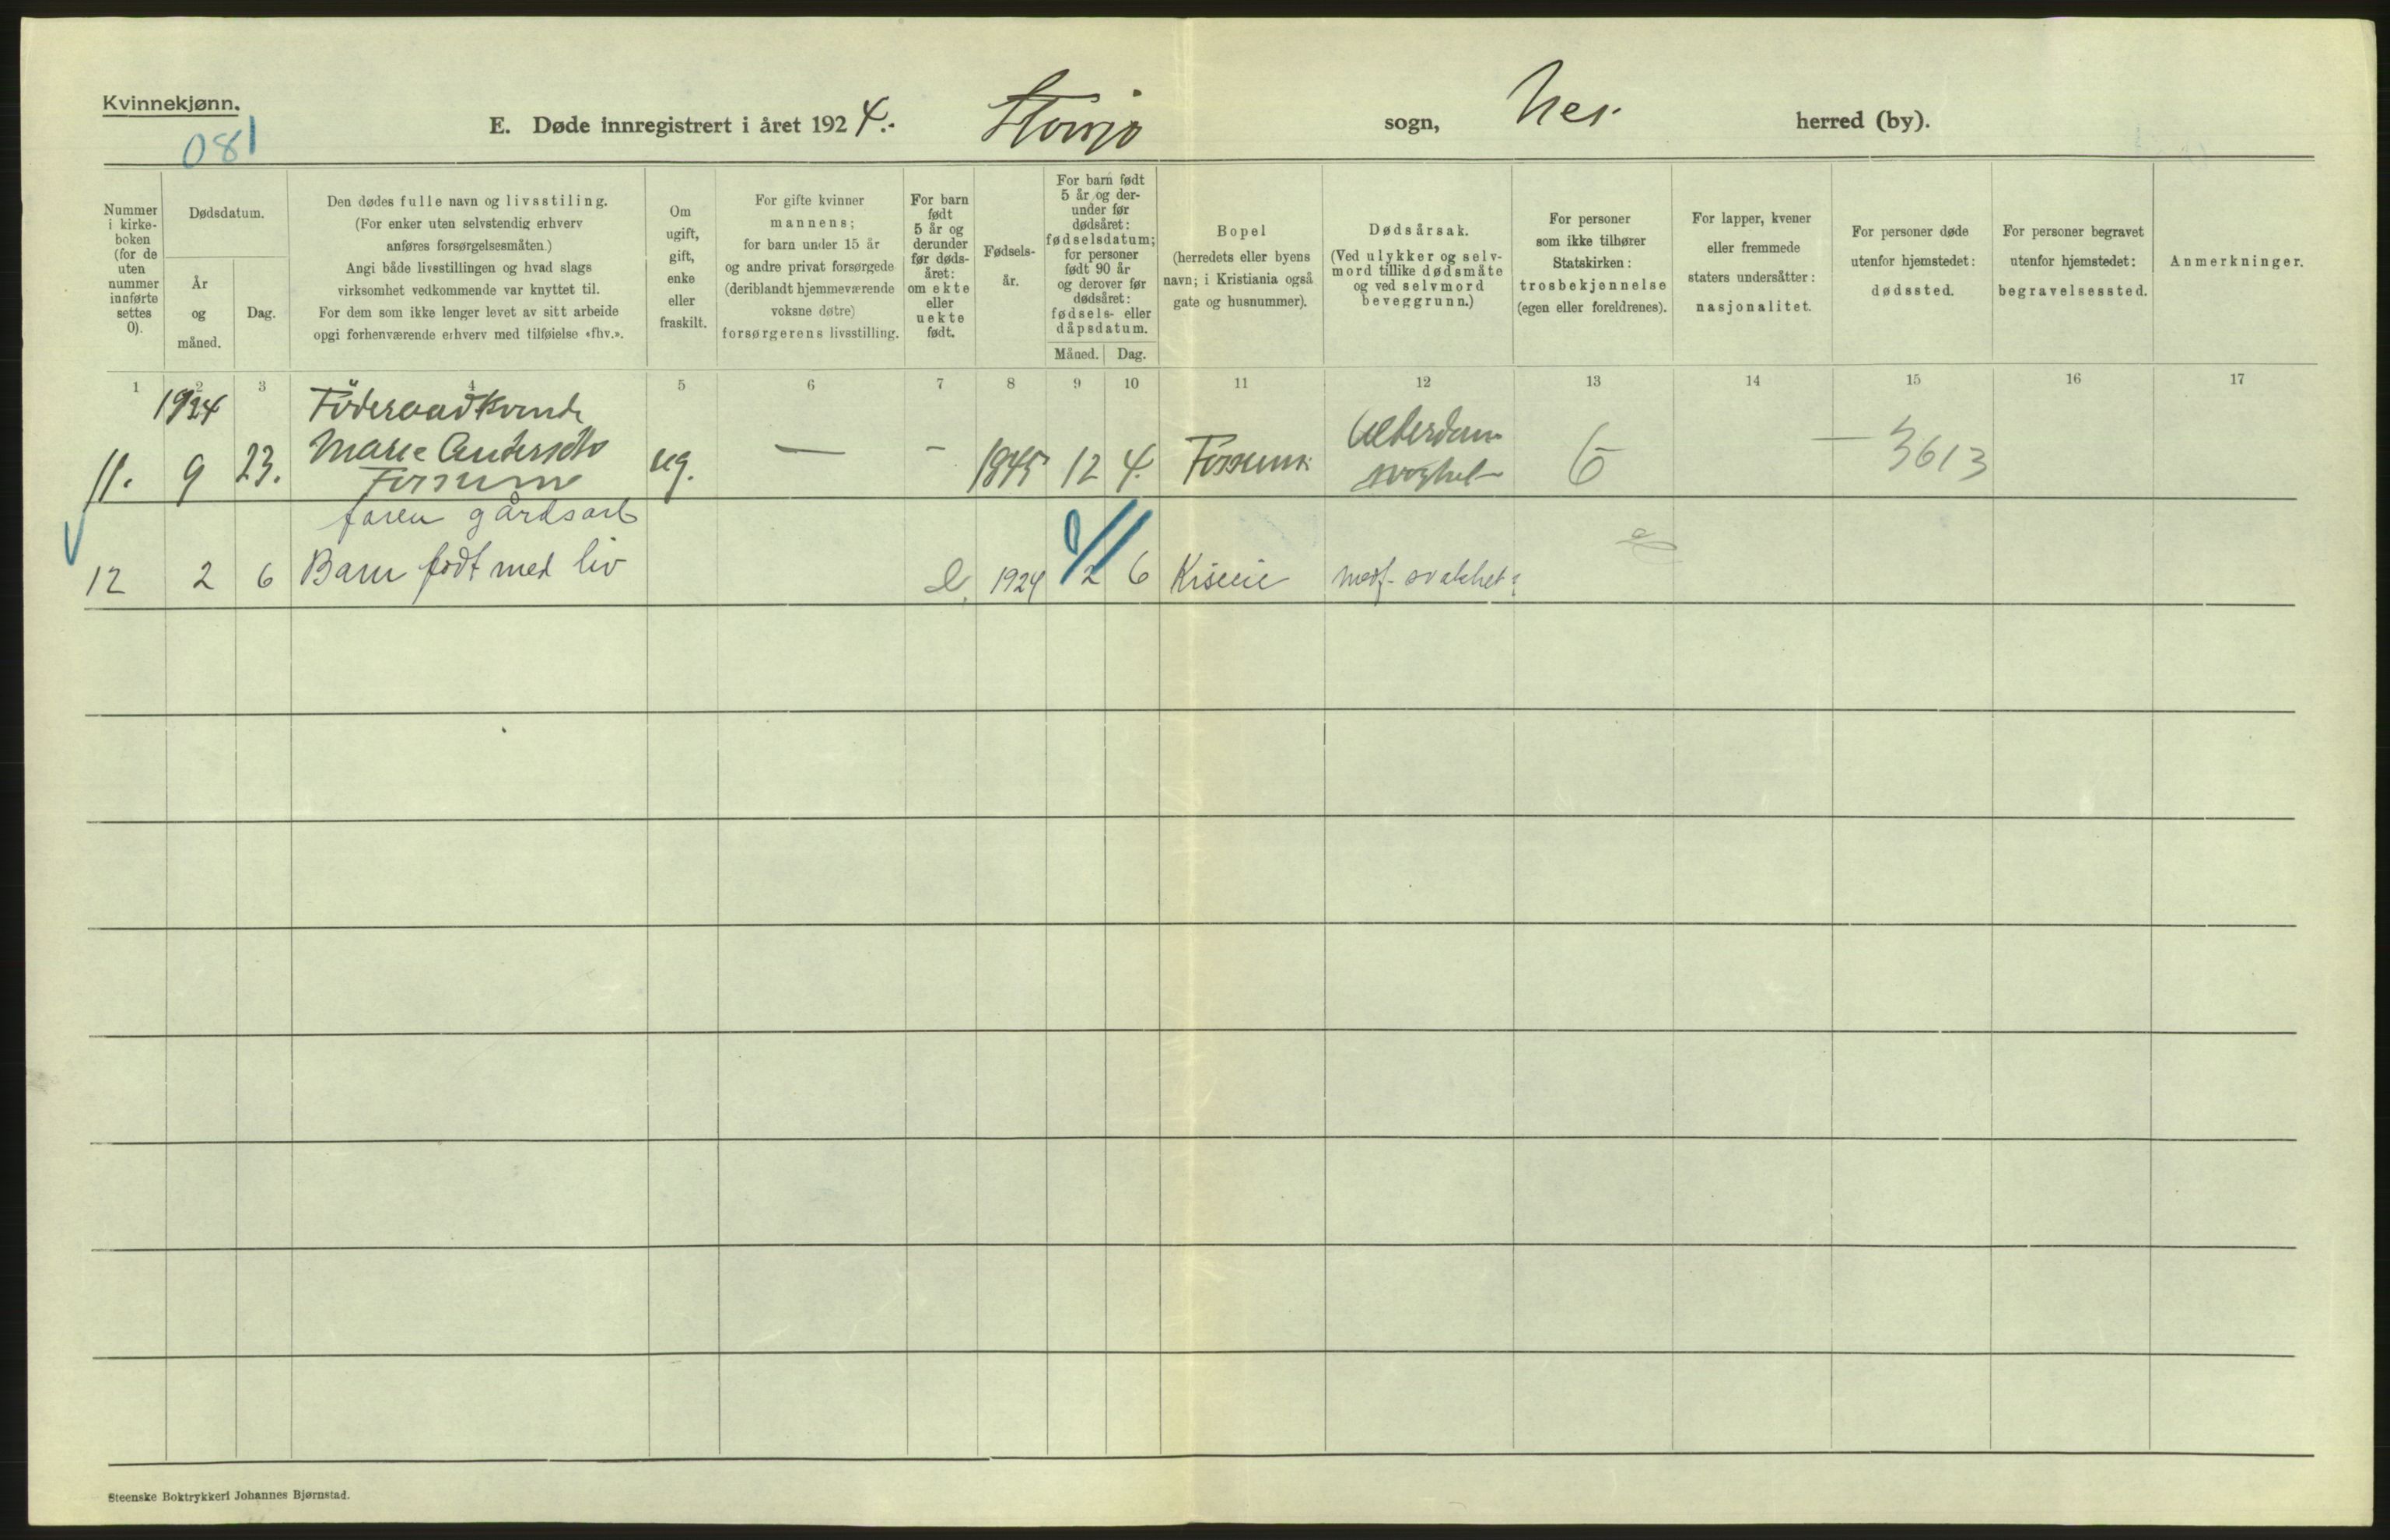 Kvinnekjønn.
081
E. Døde innregistrert i året 1924. sogn, Nes herred (by).
Nummer i kirkeboken (for de uten nummer innførte settes 0).
Dødsdatum.
År og måned.
Dag.
Den dødes fulle navn og livsstiling.
(For enker uten selvstendig erhverv
anføres forsørgelsesmåten.)
Angi både livsstillingen og hvad slags
virksomhet vedkommende var knyttet til.
For dem som ikke lenger levet av sitt arbeide
opgi forhenværende erhverv med tilføielse «fhv.».
Om
ugift,
gift,
enke
eller
fraskilt.
For gifte kvinner
mannens;
for barn under 15 år
og andre privat forsørgede
(deriblandt hjemmeværende
voksne døtre)
forsørgerens livsstilling.
For barn
født
5 år og
derunder
før døds-
året:
om ekte
eller
uekte
født.
Fødsels-
år.
For barn født
5 år og der-
under før
dødsåret:
fødselsdatum;
for personer
født 90 år
og derover før
dødsåret:
fødsels- eller
dåpsdatum.
Måned. Dag.
Bopel
(herredets eller byens
navn; i Kristiania også
gate og husnummer).
Dødsårsak.
(Ved ulykker og selv-
mord tillike dødsmåte
og ved selvmord
beveggrunn.)
For personer
som ikke tilhører
Statskirken:
trosbekjennelse
(egen eller foreldrenes).
For lapper, kvener
eller fremmede
staters undersåtter:
nasjonalitet.
For personer døde
utenfor hjemstedet:
dødssted.
For personer begravet
utenfor hjemstedet:
begravelsessted.
Anmerkninger.
1 2 3 4 5 6 7 8 9 10 11 12 13 14 15 16 17
1924 Föderaadkvinde
11. 9 23. Marie Andersdtr Fossum ug. — - 1845 12 4. Fossum Alderdoms 6 — 3613
faren gårdsarb
12 2 6 Barn født med liv 1924 2 6 Kiseie medf. svakhet
Steenske Boktrykkeri Johannes Bjørnstad.